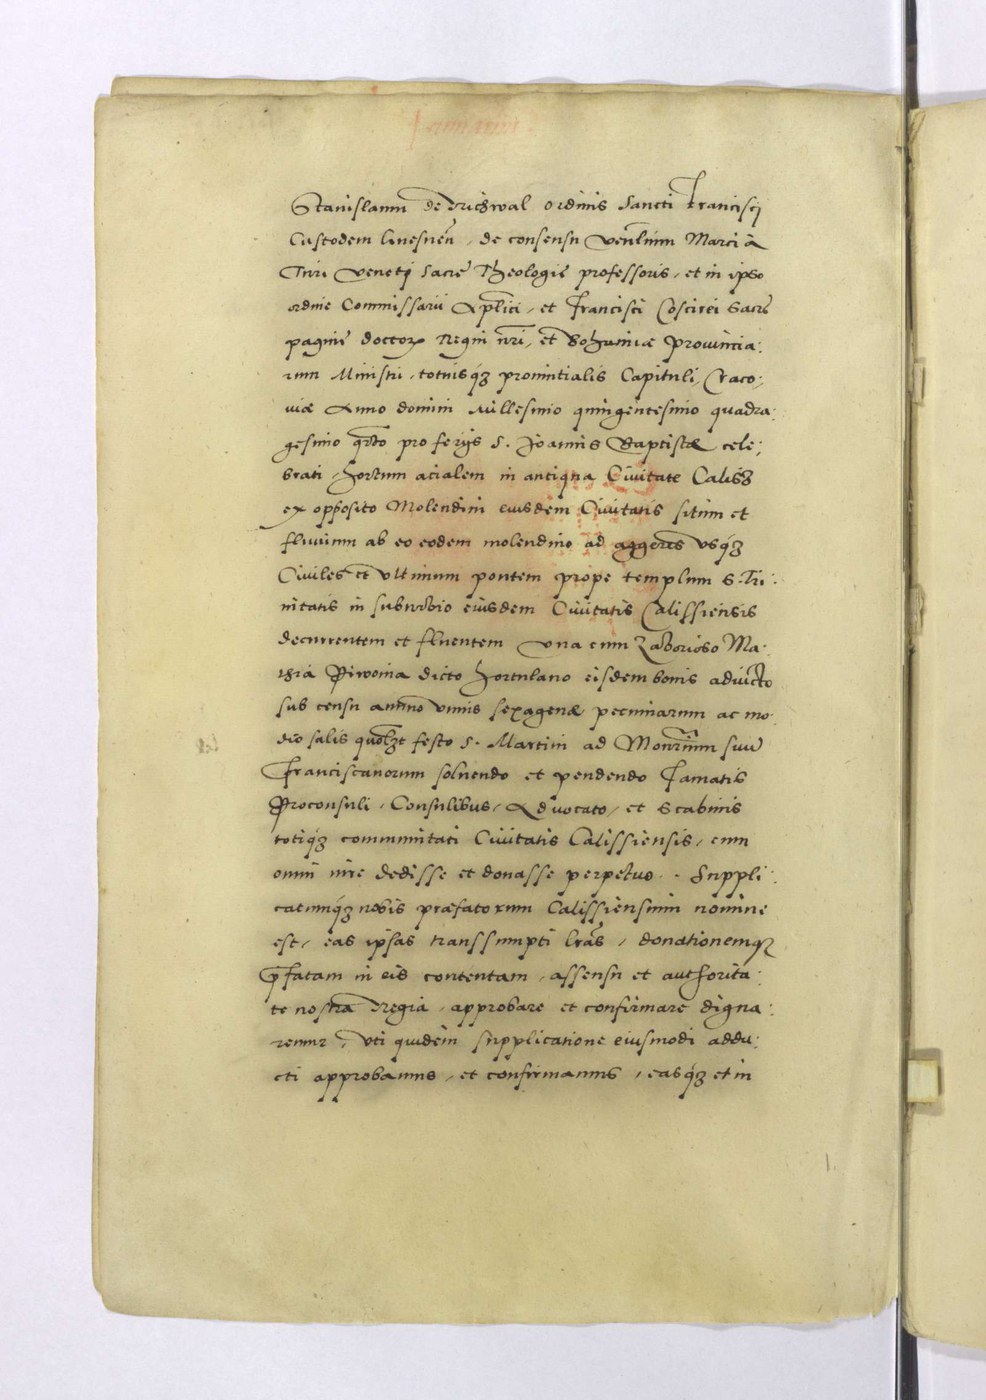 Stanislaum de Drichwal ordinis Sancti Francisci
Custodem Gnesnen̄, de consensu venl̄ium Marci à
Turri Veneti Sacre Theologie professoris, et in ipso
ordine Commissarii Apl̄ici, et Francisci Sacre
pagine doctor Regni nr̄i, et Bohœmiæ Prouincia:
rum Ministri, totiusq́ʒ prouintialis Capituli, Craco:
uiæ Anno domini Millesimo quingentesimo quadra:
gesimo qr̄to pro ferijs S. Joannis Baptistæ cele:
brati, hortum acialem in antiqua Ciuitate Calisʒ
ex opposito Molendini eiusdem Ciuitatis situm et
fluuium ab eo eodem molendino ad aggeres vsq́ʒ
Ciuiles et vltimum pontem prope templum S. Tri:
nitatis in suburbio eiusdem Ciuitatis Calissiensis
decurrentem et fluentem vna cum Laborioso Ma:
thia Piwonia dicto hortulano eisdem bonis adiūcto
sub censu annuo vnius sexagenæ pecuniarum ac mo:
dio salis quolʒt festo S. Martini ad Monr̄ium suū
Franciscanorum soluendo et pendendo Famatis
Proconsuli, Consulibus, Aduocato, et Scabinis
totiq́ʒ communitati Ciuitatis Calissiensis, cum
omni iure dedisse et donasse perpetuo. Suppli:
catumq́ʒ nobis præfatorum Calissiensium nomine
est, eas ipsas transsumpti lr̄as, donationemqʒ
p̄fatam in eis contentam, assensu et authorita:
te nostra Regia, approbare et confirmare digna:
remur, vti quidem supplicatione eiusmodi addu:
cti approbamus, et confirmamus, easq́ʒ et in